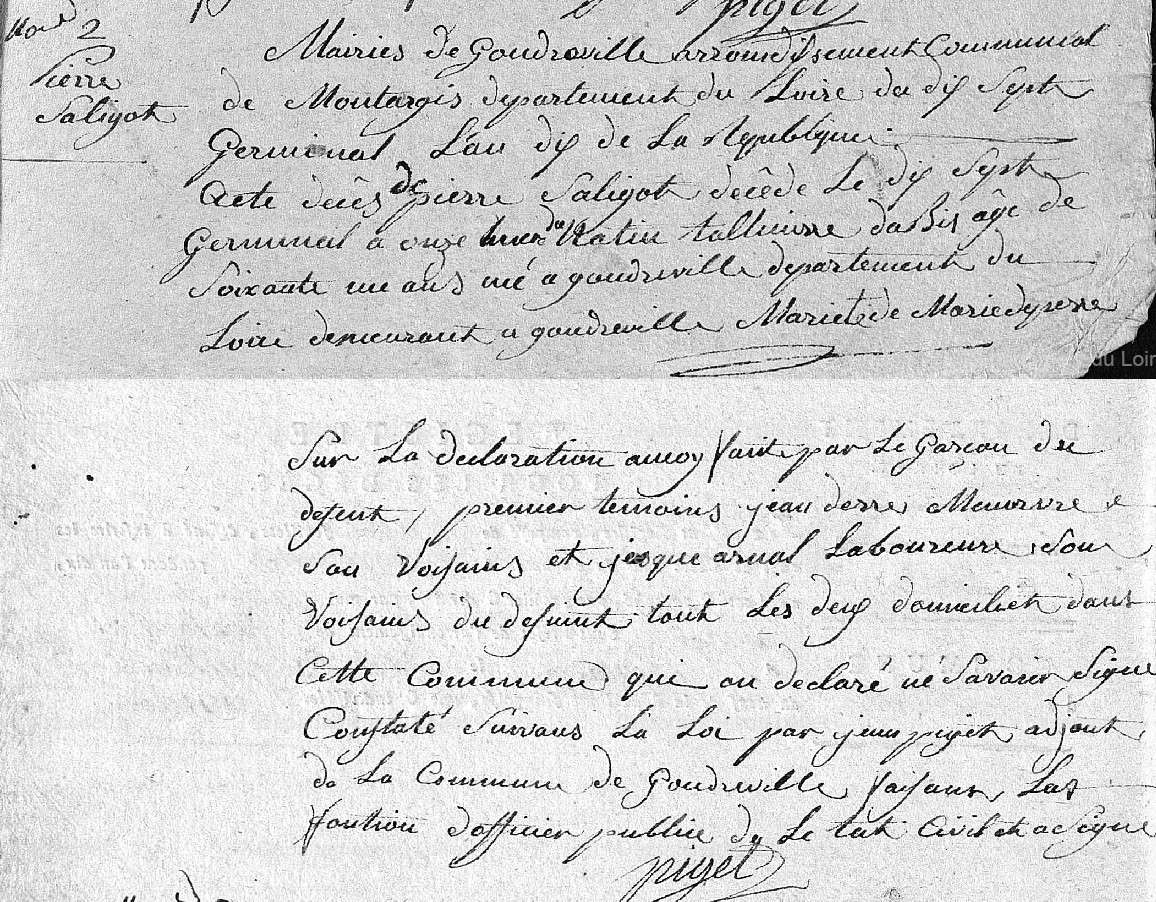 Mort 2
Pierre
Saligot
piget
Mairies de Gondreville arrondissement Communal
de Montargis departement du Loire du dix Sept
Germinal L'an dix de La Republique
Acte decès de pierre Saligot decêde Le dix Sept
Germinal a onze heure du Matin tallieure dabis âge de
Soixante un ans né a gondreville departement du
Loire demeurant a gondreville Marie de Marie
du Loir
Sur La declaration amoy fait par Le Garçon du
defent, premier temoins jean derre
Son Voisains et jasque arnal Laboureure Son
Voisains du defunt tout Les deux domicilier dans
Cette Commune qui on declaré ne Savoir Signe
Constaté Suivans La Loi par jean piget adjout
de La Commune de Gondreville faisant Las
fontion dofficier public de Le tat Civil et a Signe
piget